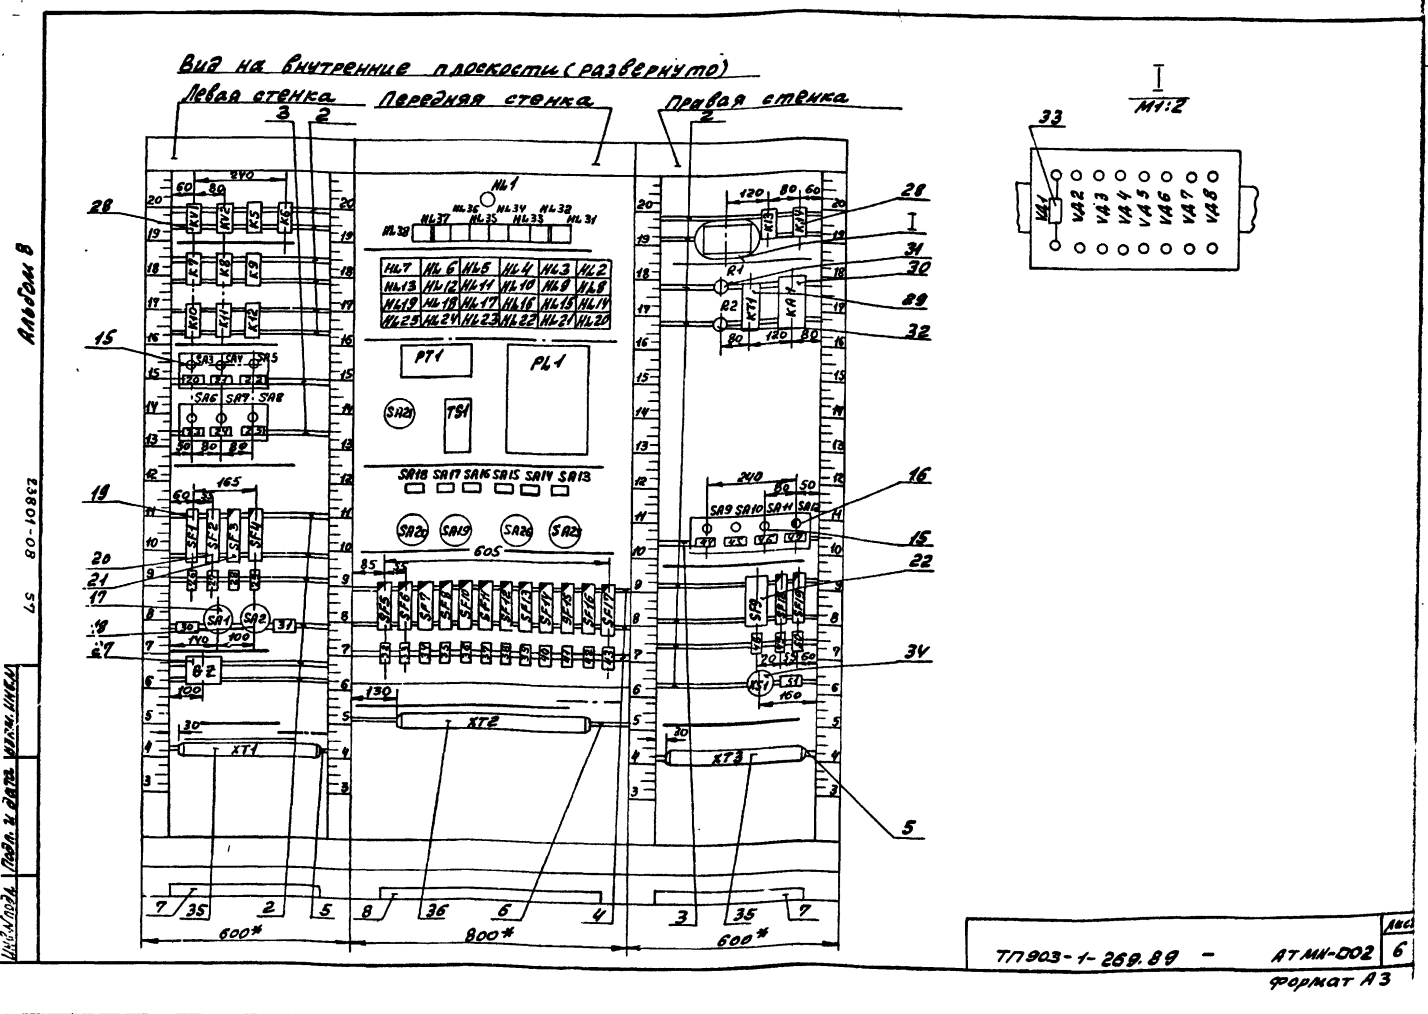 Вид на внутренние плоскости (развернуто)
Левая стенка
Передняя стенка
Правая стенка
I
М1:2
33
VД1 VД2 VД3 VД4 VД5 VД6 VД7 VД8
Альбом 8
23801-08 57
3 2
2
240
60 80
28
KV1 KV2 K5 K6
K7 K8 K9
K10 K11 K12
20 19 18 17 16 15 14 13 12 11 10 9 8 7 6 5 4 3
15
SA3 SA4 SA5
SA6 SA7 SA8
50 80 80
165
60 35
19
SF1 SF2 SF3 SF4
20
21
17
SA1 SA2
30 31
18
140 100
27
100
30
XT1
HL1
HL38 HL37 HL36 HL35 HL34 HL33 HL32 HL31
HL7 HL6 HL5 HL4 HL3 HL2
HL13 HL12 HL11 HL10 HL9 HL8
HL19 HL18 HL17 HL16 HL15 HL14
HL25 HL24 HL23 HL22 HL21 HL20
PT1
PL1
SA21
TS1
SA18 SA17 SA16 SA15 SA14 SA13
SA20 SA19 SA26 SA25
605
85 35
SF5 SF6 SF7 SF8 SF10 SF11 SF12 SF13 SF14 SF15 SF16 SF17
32 33 34 35 36 37 38 39 40 41 42 43
130
XT2
120 80 60
K13 K14
28
I
31
30
29
32
R1
R2
KT1
KA1
80 120 80
240
80 50
16
SA9 SA10 SA11 SA12
44 45 46 47
15
22
SF9 SF18 SF19
70 35 60
34
XS1 51
160
30
XT3
5
7 35 2 5 8 36 6 4 3 35 7
600* 800* 600*
ТП903-1-269.89 - АТМN-002
Лист
6
Формат А3
Инв.N подл. Подп. и дата Взам. инв.N